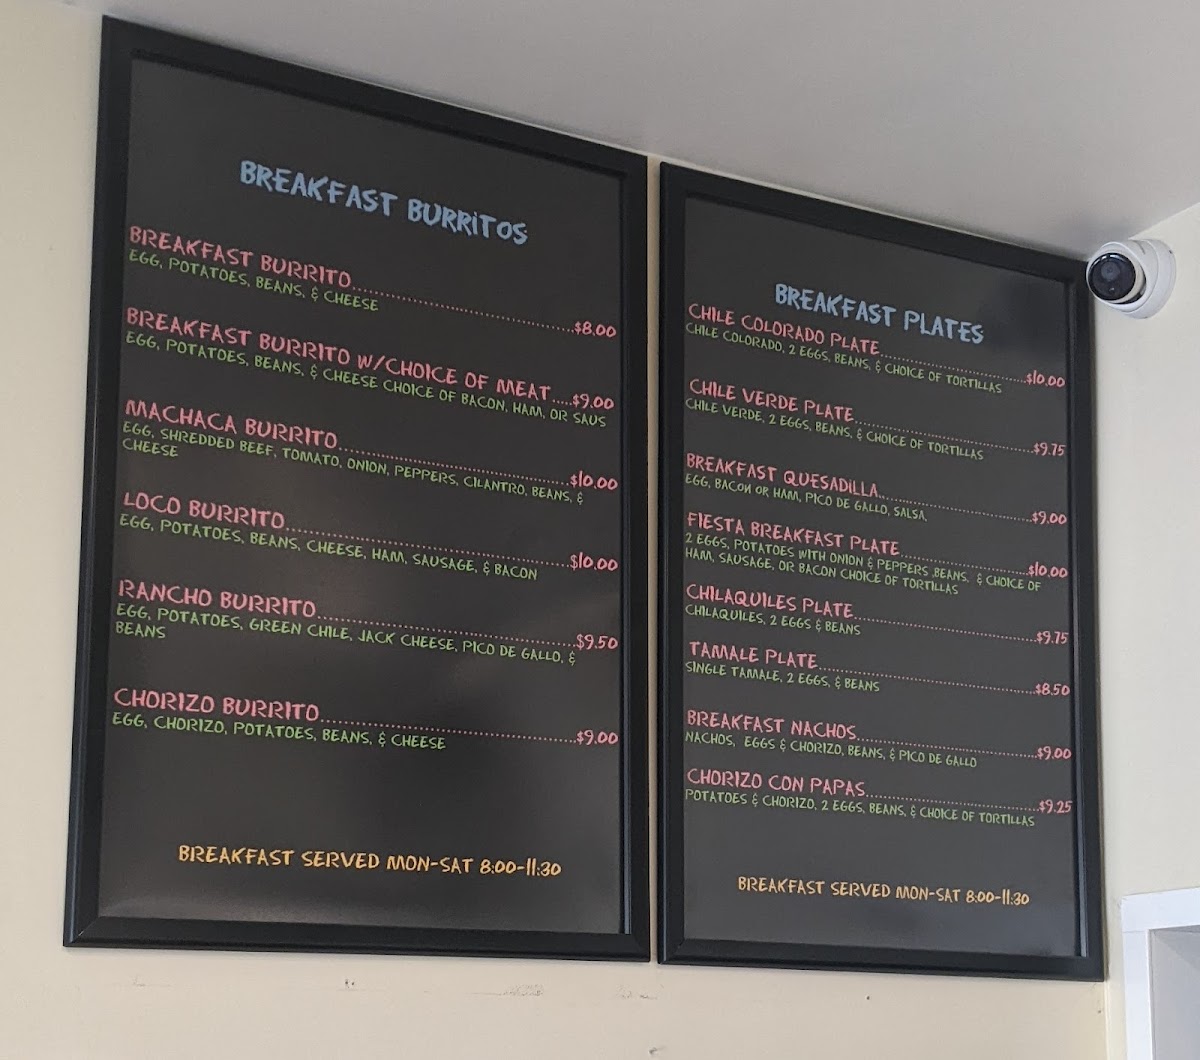 BREAKFAST BURRITOS
BREAKFAST BURRITO...........................................$8.00
EGG, POTATOES, BEANS, & CHEESE
BREAKFAST BURRITO W/CHOICE OF MEAT.....$9.00
EGG, POTATOES, BEANS, & CHEESE CHOICE OF BACON, HAM, OR SAUS
MACHACA BURRITO............................................$10.00
EGG, SHREDDED BEEF, TOMATO, ONION, PEPPERS, CILANTRO, BEANS, &
CHEESE
LOCO BURRITO.....................................................$10.00
EGG, POTATOES, BEANS, CHEESE, HAM, SAUSAGE, & BACON
RANCHO BURRITO................................................$9.50
EGG, POTATOES, GREEN CHILE, JACK CHEESE, PICO DE GALLO, &
BEANS
CHORIZO BURRITO...............................................$9.00
EGG, CHORIZO, POTATOES, BEANS, & CHEESE
BREAKFAST SERVED MON-SAT 8:00-11:30
BREAKFAST PLATES
CHILE COLORADO PLATE................................$10.00
CHILE COLORADO, 2 EGGS, BEANS, & CHOICE OF TORTILLAS
CHILE VERDE PLATE.......................................$9.75
CHILE VERDE, 2 EGGS, BEANS, & CHOICE OF TORTILLAS
BREAKFAST QUESADILLA..................................$9.00
EGG, BACON OR HAM, PICO DE GALLO, SALSA,
FIESTA BREAKFAST PLATE............................$10.00
2 EGGS, POTATOES WITH ONION & PEPPERS ,BEANS, & CHOICE OF
HAM, SAUSAGE, OR BACON CHOICE OF TORTILLAS
CHILAQUILES PLATE........................................$9.75
CHILAQUILES, 2 EGGS & BEANS
TAMALE PLATE................................................$8.50
SINGLE TAMALE, 2 EGGS, & BEANS
BREAKFAST NACHOS.......................................$9.00
NACHOS, EGGS & CHORIZO, BEANS, & PICO DE GALLO
CHORIZO CON PAPAS......................................$9.25
POTATOES & CHORIZO, 2 EGGS, BEANS, & CHOICE OF TORTILLAS
BREAKFAST SERVED MON-SAT 8:00-11:30